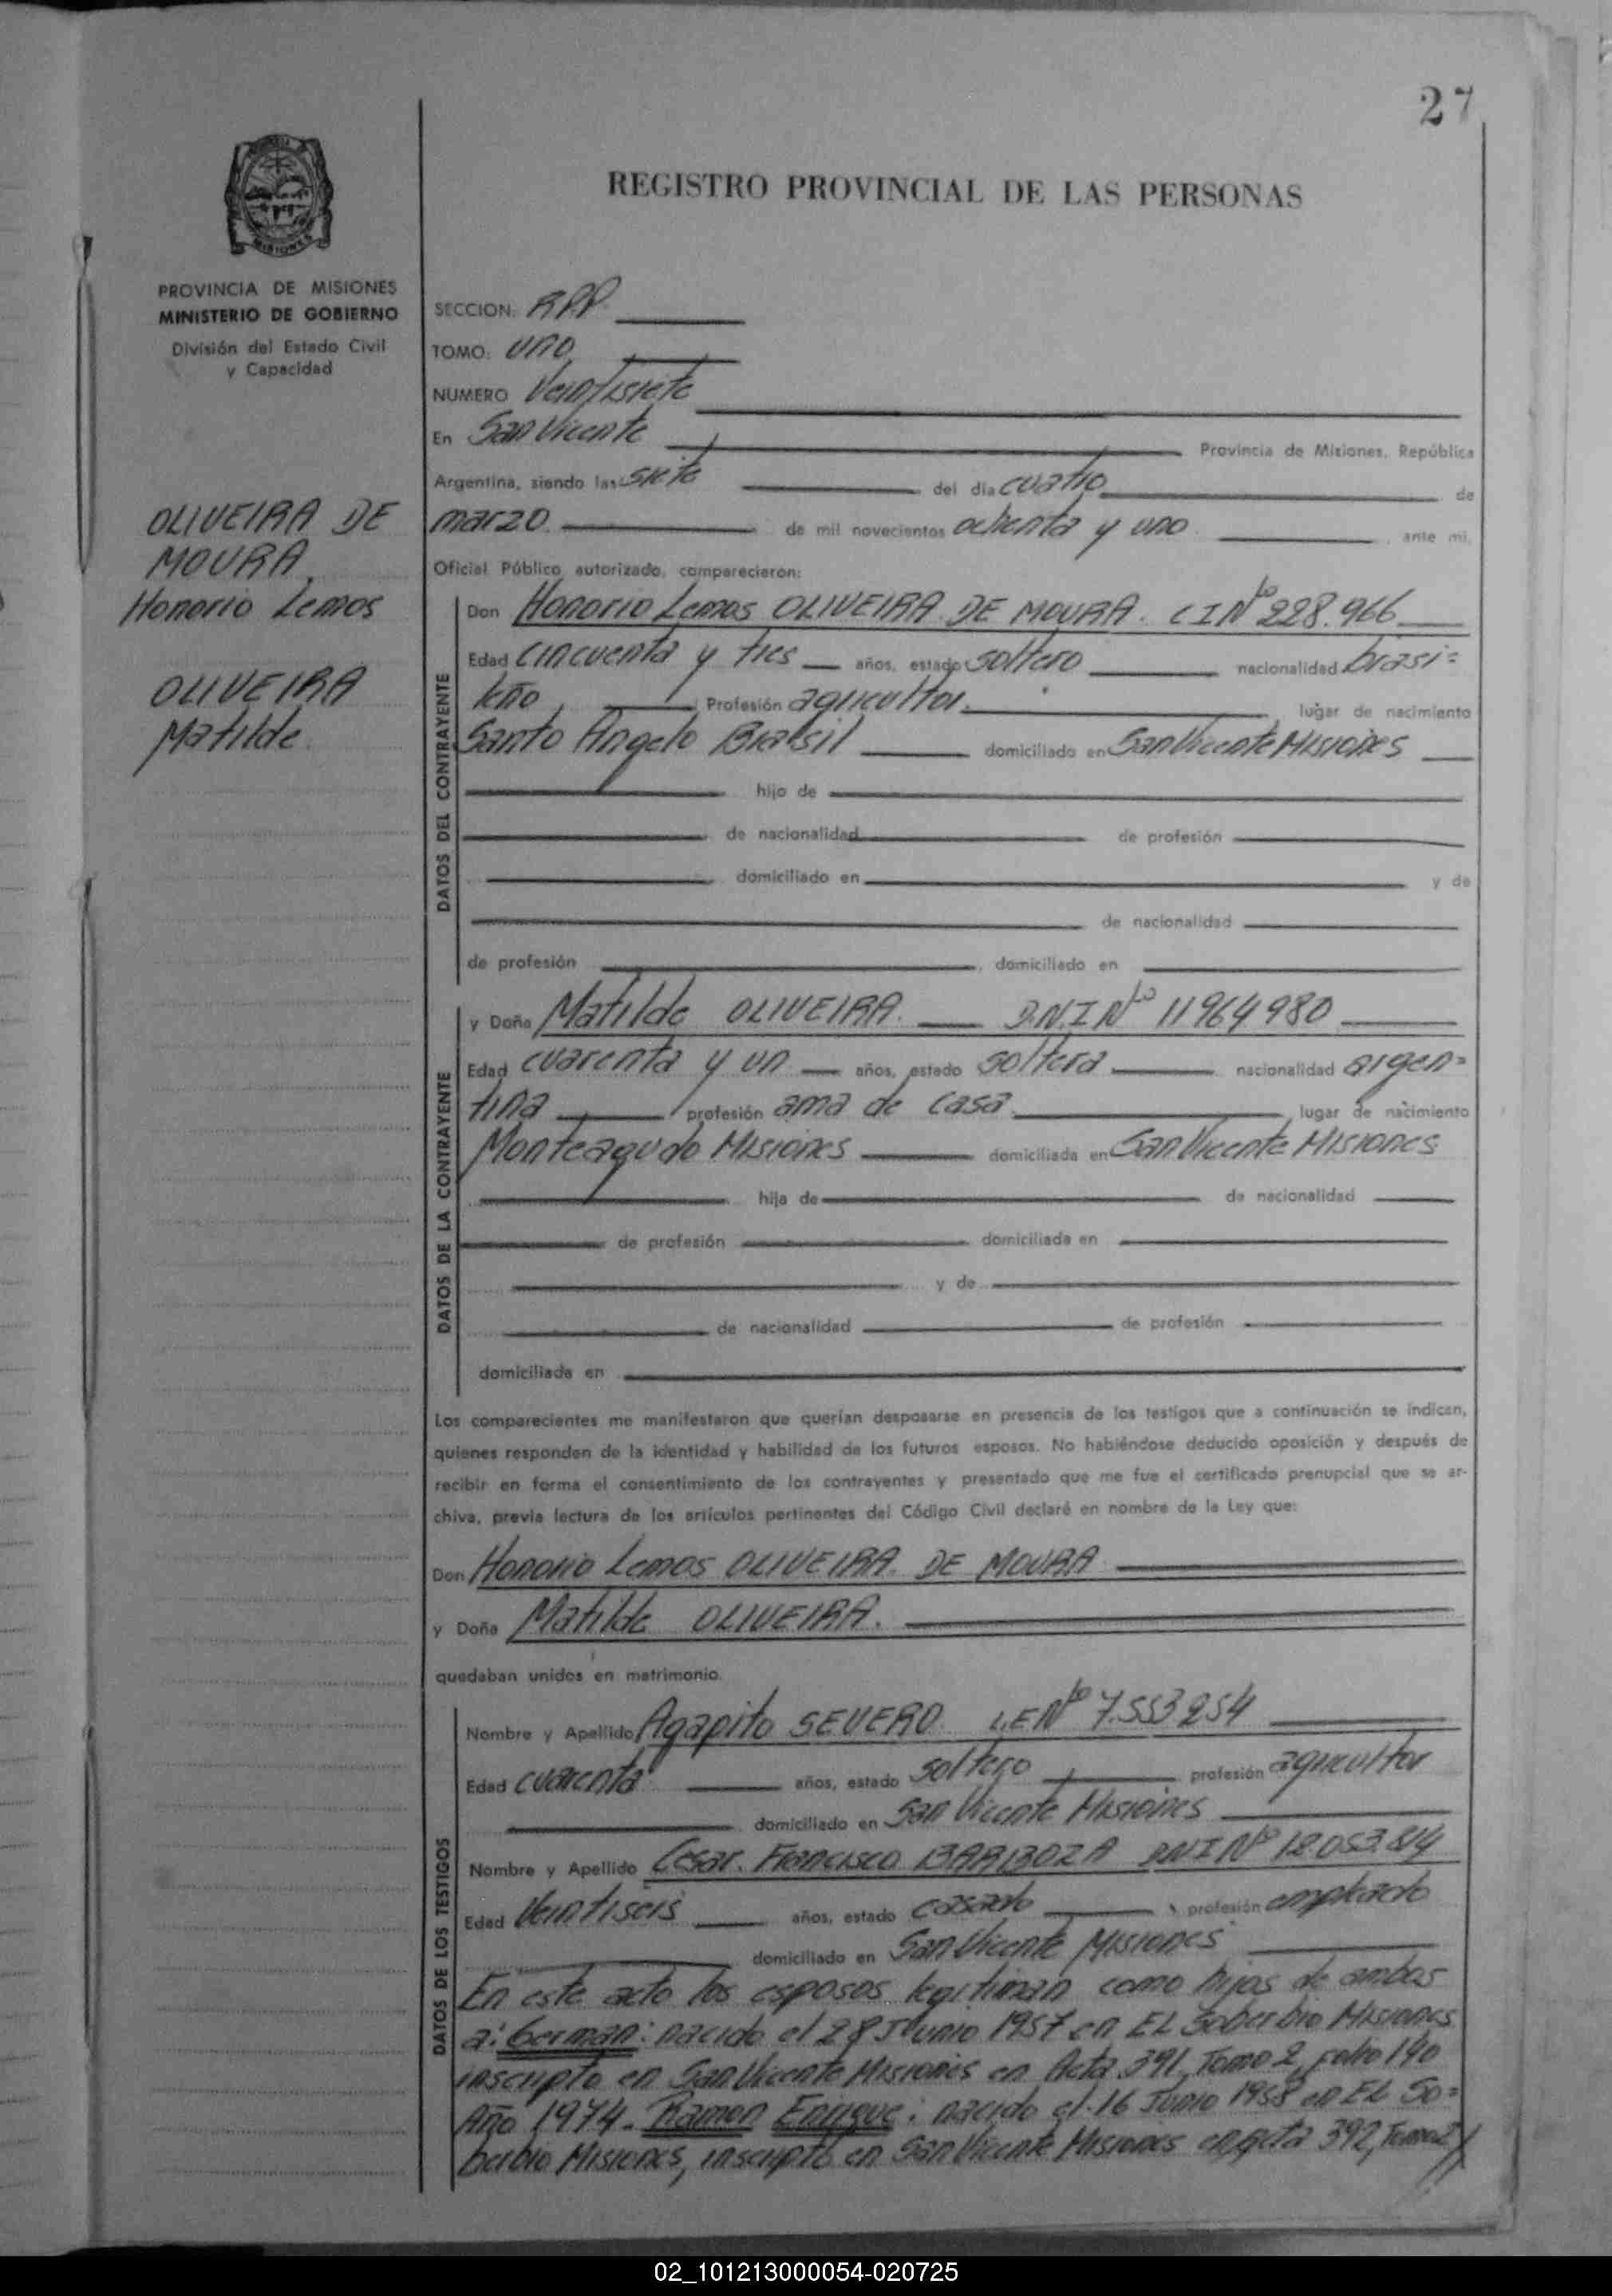 27
REGISTRO PROVINCIAL DE LAS PERSONAS
MISIONES
PROVINCIA DE MISIONES
MINISTERIO DE GOBIERNO
División del Estado Civil
y Capacidad
OLIVEIRA DE
MOURA,
Honorio Lemos
OLIVEIRA
Matilde.
SECCION: RPP
TOMO: uno
NUMERO Veintisiete
En San Vicente Provincia de Misiones, República
Argentina, siendo las siete del día cuatro de
marzo. de mil novecientos ochenta y uno. ante mi,
Oficial Público autorizado, comparecieron:
DATOS DEL CONTRAYENTE
Don Honorio Lemos OLIVEIRA DE MOURA. CI Nº 228.966
Edad cincuenta y tres años, estado soltero nacionalidad brasi=
leño, Profesión agricultor. lugar de nacimiento
Santo Angelo Brasil domiciliado en San Vicente Misiones
hijo de
de nacionalidad de profesión
domiciliado en y de
de nacionalidad
de profesión , domiciliado en
DATOS DE LA CONTRAYENTE
y Doña Matilde OLIVEIRA. D.N.I Nº 11964980
Edad cuarenta y un años, estado soltera nacionalidad argen=
tina profesión ama de casa lugar de nacimiento
Monteagudo Misiones domiciliada en San Vicente Misiones
hija de de nacionalidad
de profesión domiciliada en
y de
de nacionalidad de profesión
domiciliada en
Los comparecientes me manifestaron que querían desposarse en presencia de los testigos que a continuación se indican,
quienes responden de la identidad y habilidad de los futuros esposos. No habiéndose deducido oposición y después de
recibir en forma el consentimiento de los contrayentes y presentado que me fue el certificado prenupcial que se ar-
chiva, previa lectura de los artículos pertinentes del Código Civil declaré en nombre de la Ley que:
Don Honorio Lemos OLIVEIRA DE MOURA
y Doña Matilde OLIVEIRA.
quedaban unidos en matrimonio.
DATOS DE LOS TESTIGOS
Nombre y Apellido Agapito SEVERO L.E Nº 7.553254
Edad cuarenta años, estado soltero profesión agricultor
domiciliado en San Vicente Misiones
Nombre y Apellido Cesar. Francisco BARBOZA DNI Nº 12.053.814
Edad Veintiseis años, estado casado profesión empleado
domiciliado en San Vicente Misiones
En este acto los esposos legitiman como hijos de ambos
a: German: nacido el 28 Junio 1957 en EL Soberbio Misiones
inscripto en San Vicente Misiones en Acta 391, Tomo 2, Folio 140
Año 1974. Ramon Enrique: nacido el 16 Junio 1958 en EL So=
berbio Misiones, inscripto en San Vicente Misiones en Acta 392, Tomo 2 //
02_101213000054-020725